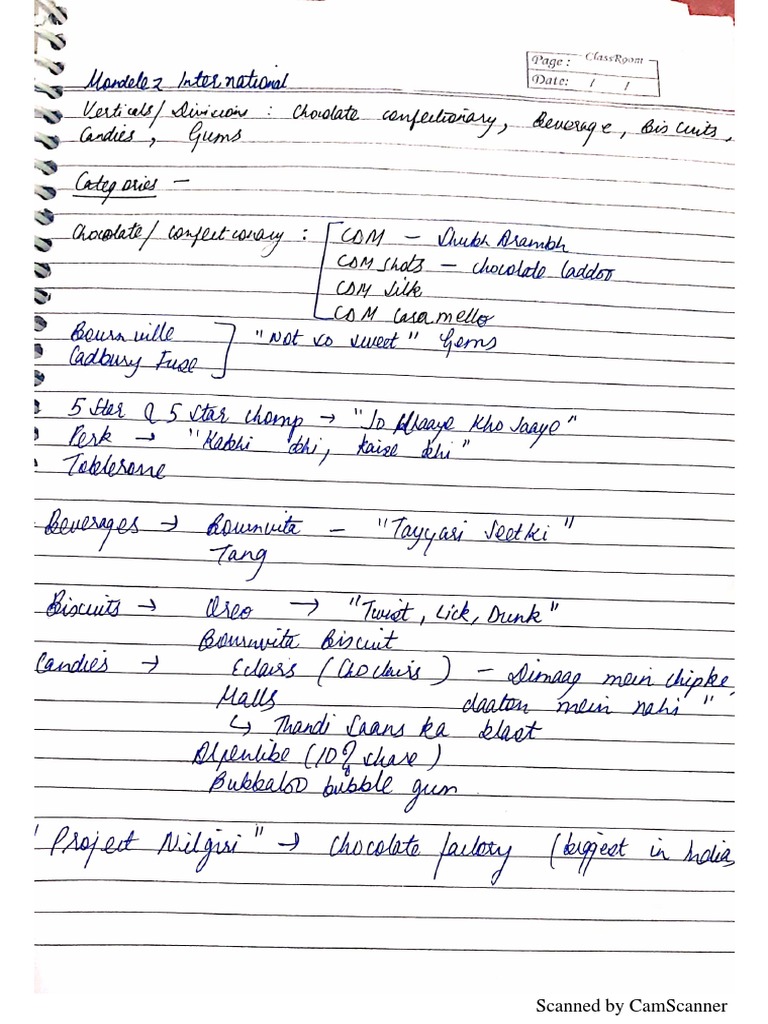 Page: ClassRoom
Date: / /
Mondelez International
Verticals/Divisions : Chocolate confectionary, Beverage, Biscuits,
Candies, Gums
Categories -
Chocolate/ confectionary : CDM - Shubh Arambh
CDM Shots - chocolate laddoo
CDM Silk
CDM Caramello
Bournville "Not so sweet" Gems
Cadbury Fuse
5 Star & 5 Star chomp → "Jo Khaaye Kho Jaaye"
Perk → "Kabhi bhi, kaise bhi"
Toblerone
Beverages → Bournvita - "Tayyari Jeet ki"
Tang
Biscuits → Oreo → "Twist, Lick, Dunk"
Bournvita Biscuit
Candies → Eclairs (Choclairs) - Dimaag mein chipke,
Halls daaton mein nahi"
↳ Thandi Saans ka blast
Alpenlibe (10% share)
Bubbaloo bubble gum
"Project Nilgiri" → Chocolate factory (biggest in India
Scanned by CamScanner